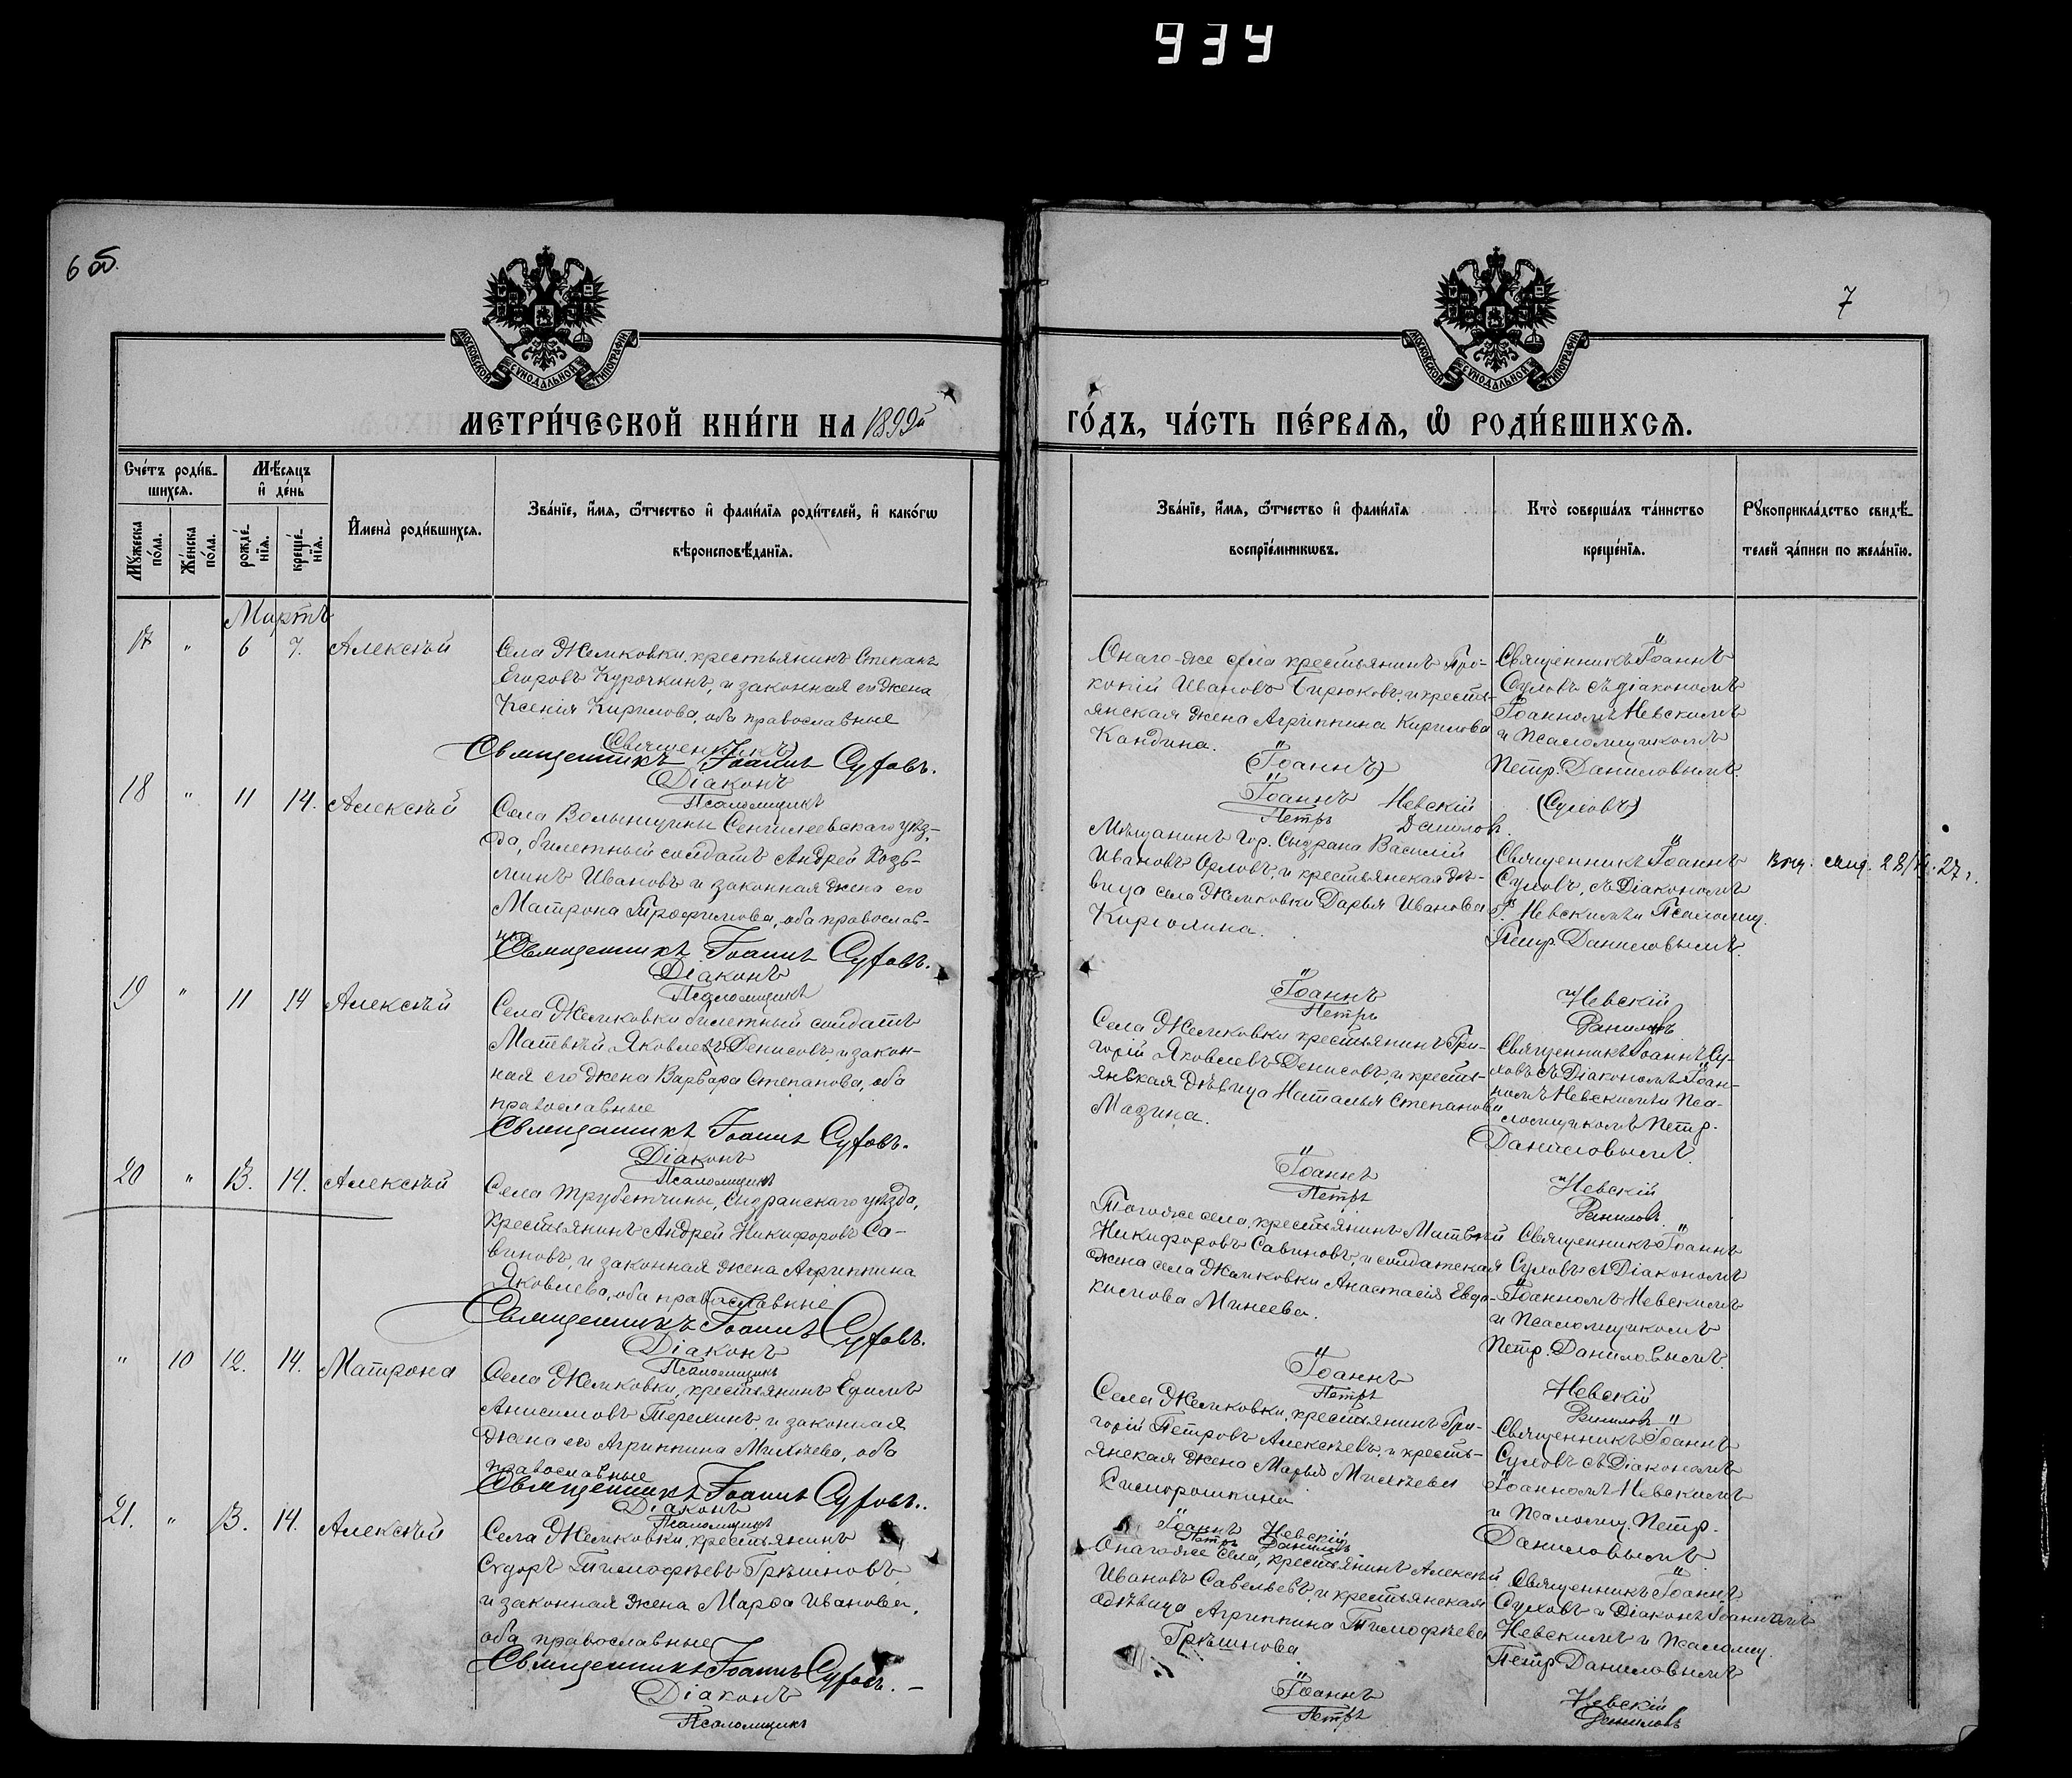 934
6 об.
7
МОСКОВСКОЙ СУНОДАЛЬНОЙ ТИПОГРАФІИ.
МОСКОВСКОЙ СУНОДАЛЬНОЙ ТИПОГРАФІИ.
МЕТРИ́ЧЕСКОЙ КНИ́ГИ НА 1899й
ГО́ДЪ, ЧА́СТЬ ПЕ́РВАѦ, Ѽ РОДИ́ВШИХСѦ.
Сче́тъ роди́в-
шихсѧ.
Мѣ́сѧцъ
и҆ де́нь
Мꙋ́жеска
по́ла.
Же́нска
по́ла.
рожде́-
нїѧ.
креще́-
нїѧ.
И҆мена̀ роди́вшихсѧ.
Зва́нїе, и҆́мѧ, ѻ҆́тчество и҆ фами́лїѧ роди́телей, и҆ како́гѡ
вѣроисповѣ́данїѧ.
Зва́нїе, и҆́мѧ, ѻ҆́тчество и҆ фами́лїѧ
воспрїе́мникѡвъ.
Кто̀ соверша́лъ та́инство
креще́нїѧ.
Рꙋкоприкла́дство свидѣ́-
телей за́писи по жела́нїю.
Мартъ
17 " 6 7. Алексѣй
Села Жемковки, крестьянинъ Степанъ
Егоровъ Курочкинъ, и законная его жена
Ксенія Кирилова, оба православные
Священникъ
Священникъ Іоаннъ Суховъ.
Діаконъ
Псаломщикъ
Онаго-же села крестьянинъ Про-
копій Ивановъ Бирюковъ, и кресть-
янская жена Агриппина Кирилова
Кандина.
Іоаннъ
Іоаннъ Невскій
Петръ Данилов.
Священникъ Іоаннъ
Суховъ съ діакономъ
Іоанномъ Невскимъ
и Псаломщикомъ
Петр. Даниловымъ.
(Суховъ)
18 " 11 14. Алексѣй
Села Волынщины Сенгилеевскаго уѣз-
да, билетный солдатъ Андрей Козь-
минъ Ивановъ и законная жена его
Матрона Трофимова, оба православ-
ные
Священникъ Іоаннъ Суховъ.
Діаконъ
Псаломщикъ
Мѣщанинъ гор. Сызрана Василій
Ивановъ Орловъ, и крестьянская дѣ-
вица села Жемковки Дарья Иванова
Кирголина.
Іоаннъ
Петръ
Священникъ Іоаннъ
Суховъ, съ Діакономъ
І. Невскимъ и Псаломщ.
Петр. Даниловымъ.
Невскій
Даниловъ
19 " 11 14 Алексѣй
Села Жемковки билетный солдатъ
Матвѣй Яковлевъ Денисовъ, и закон-
ная его жена Варвара Степанова, оба
православные
Священникъ Іоаннъ Суховъ.
Діаконъ
Псаломщикъ
Села Жемковки крестьянинъ Гри-
горій Яковлевъ Денисовъ, и кресть-
янская дѣвица Наталья Степанова
Мазина.
Іоаннъ
Петръ
Священникъ Іоаннъ Су-
ховъ съ Діакономъ Іоан-
номъ Невскимъ и Пса-
ломщикомъ Петр.
Даниловымъ.
Невскій
Данилов.
20 " 13. 14. Алексѣй
Села Трубетчины, Сызранскаго уѣзда,
крестьянинъ Андрей Никифоровъ Са-
виновъ, и законная жена Агриппина
Яковлева, оба православные
Священникъ Іоаннъ Суховъ.
Діаконъ
Псаломщикъ
Тогоже села, крестьянинъ Матвѣй
Никифоровъ Савиновъ, и солдатская
жена села Жемковки Анастасія Евдо-
кимова Минеева.
Іоаннъ
Петръ
Священникъ Іоаннъ
Суховъ съ Діакономъ
Іоанномъ Невскимъ
и Псаломщикомъ
Петр. Даниловымъ.
Невскій
Данилов
" 10 12. 14. Матрона
Села Жемковки, крестьянинъ Ефимъ
Анисимовъ Терехинъ, и законная
жена его Агриппина Михѣева, оба
православные
Священникъ Іоаннъ Суховъ.
Діаконъ
Псаломщикъ
Села Жемковки, крестьянинъ Гри-
горій Петровъ Алексѣевъ, и кресть-
янская жена Марья Михѣева
Іоаннъ Невскій
Петръ Даниловъ
Священникъ Іоаннъ
Суховъ съ Діакономъ
Іоанномъ Невскимъ
и Псаломщ. Петр.
Даниловымъ
21. " 13. 14. Алексѣй
Села Жемковки, крестьянинъ
Сидоръ Тимофѣевъ Грѣшновъ,
и законная жена Марфа Иванова,
оба православные
Священникъ Іоаннъ Суховъ. –
Діаконъ
Псаломщикъ
Онагоже села, крестьянинъ Алексѣй
Ивановъ Савельевъ, и крестьянская
дѣвица Агриппина Тимофѣева
Грѣшнова.
Іоаннъ
Петръ
Священникъ Іоаннъ
Суховъ и Діаконъ Іоанномъ
Невскимъ и Псаломщ.
Петр Даниловымъ
Невскій
Даниловъ